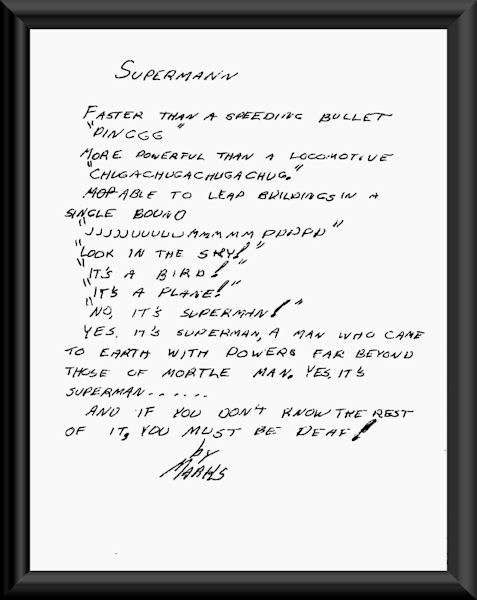 SUPERMANN
FASTER THAN A SPEEDING BULLET
"PINGGG"
MORE POWERFUL THAN A LOCOMOTIVE
"CHUGACHUGACHUGACHUG."
ABLE TO LEAP BUILDINGS IN A
SINGLE BOUND
"JJJJJUUUUUMMMMM PPPPP"
"LOOK IN THE SKY!"
"IT'S A BIRD!"
"IT'S A PLANE!"
"NO, IT'S SUPERMAN!"
YES. IT'S SUPERMAN, A MAN WHO CAME
TO EARTH WITH POWERS FAR BEYOND
THOSE OF MORTLE MAN. YES, IT'S
SUPERMAN......
AND IF YOU DON'T KNOW THE REST
OF IT, YOU MUST BE DEAF!
by